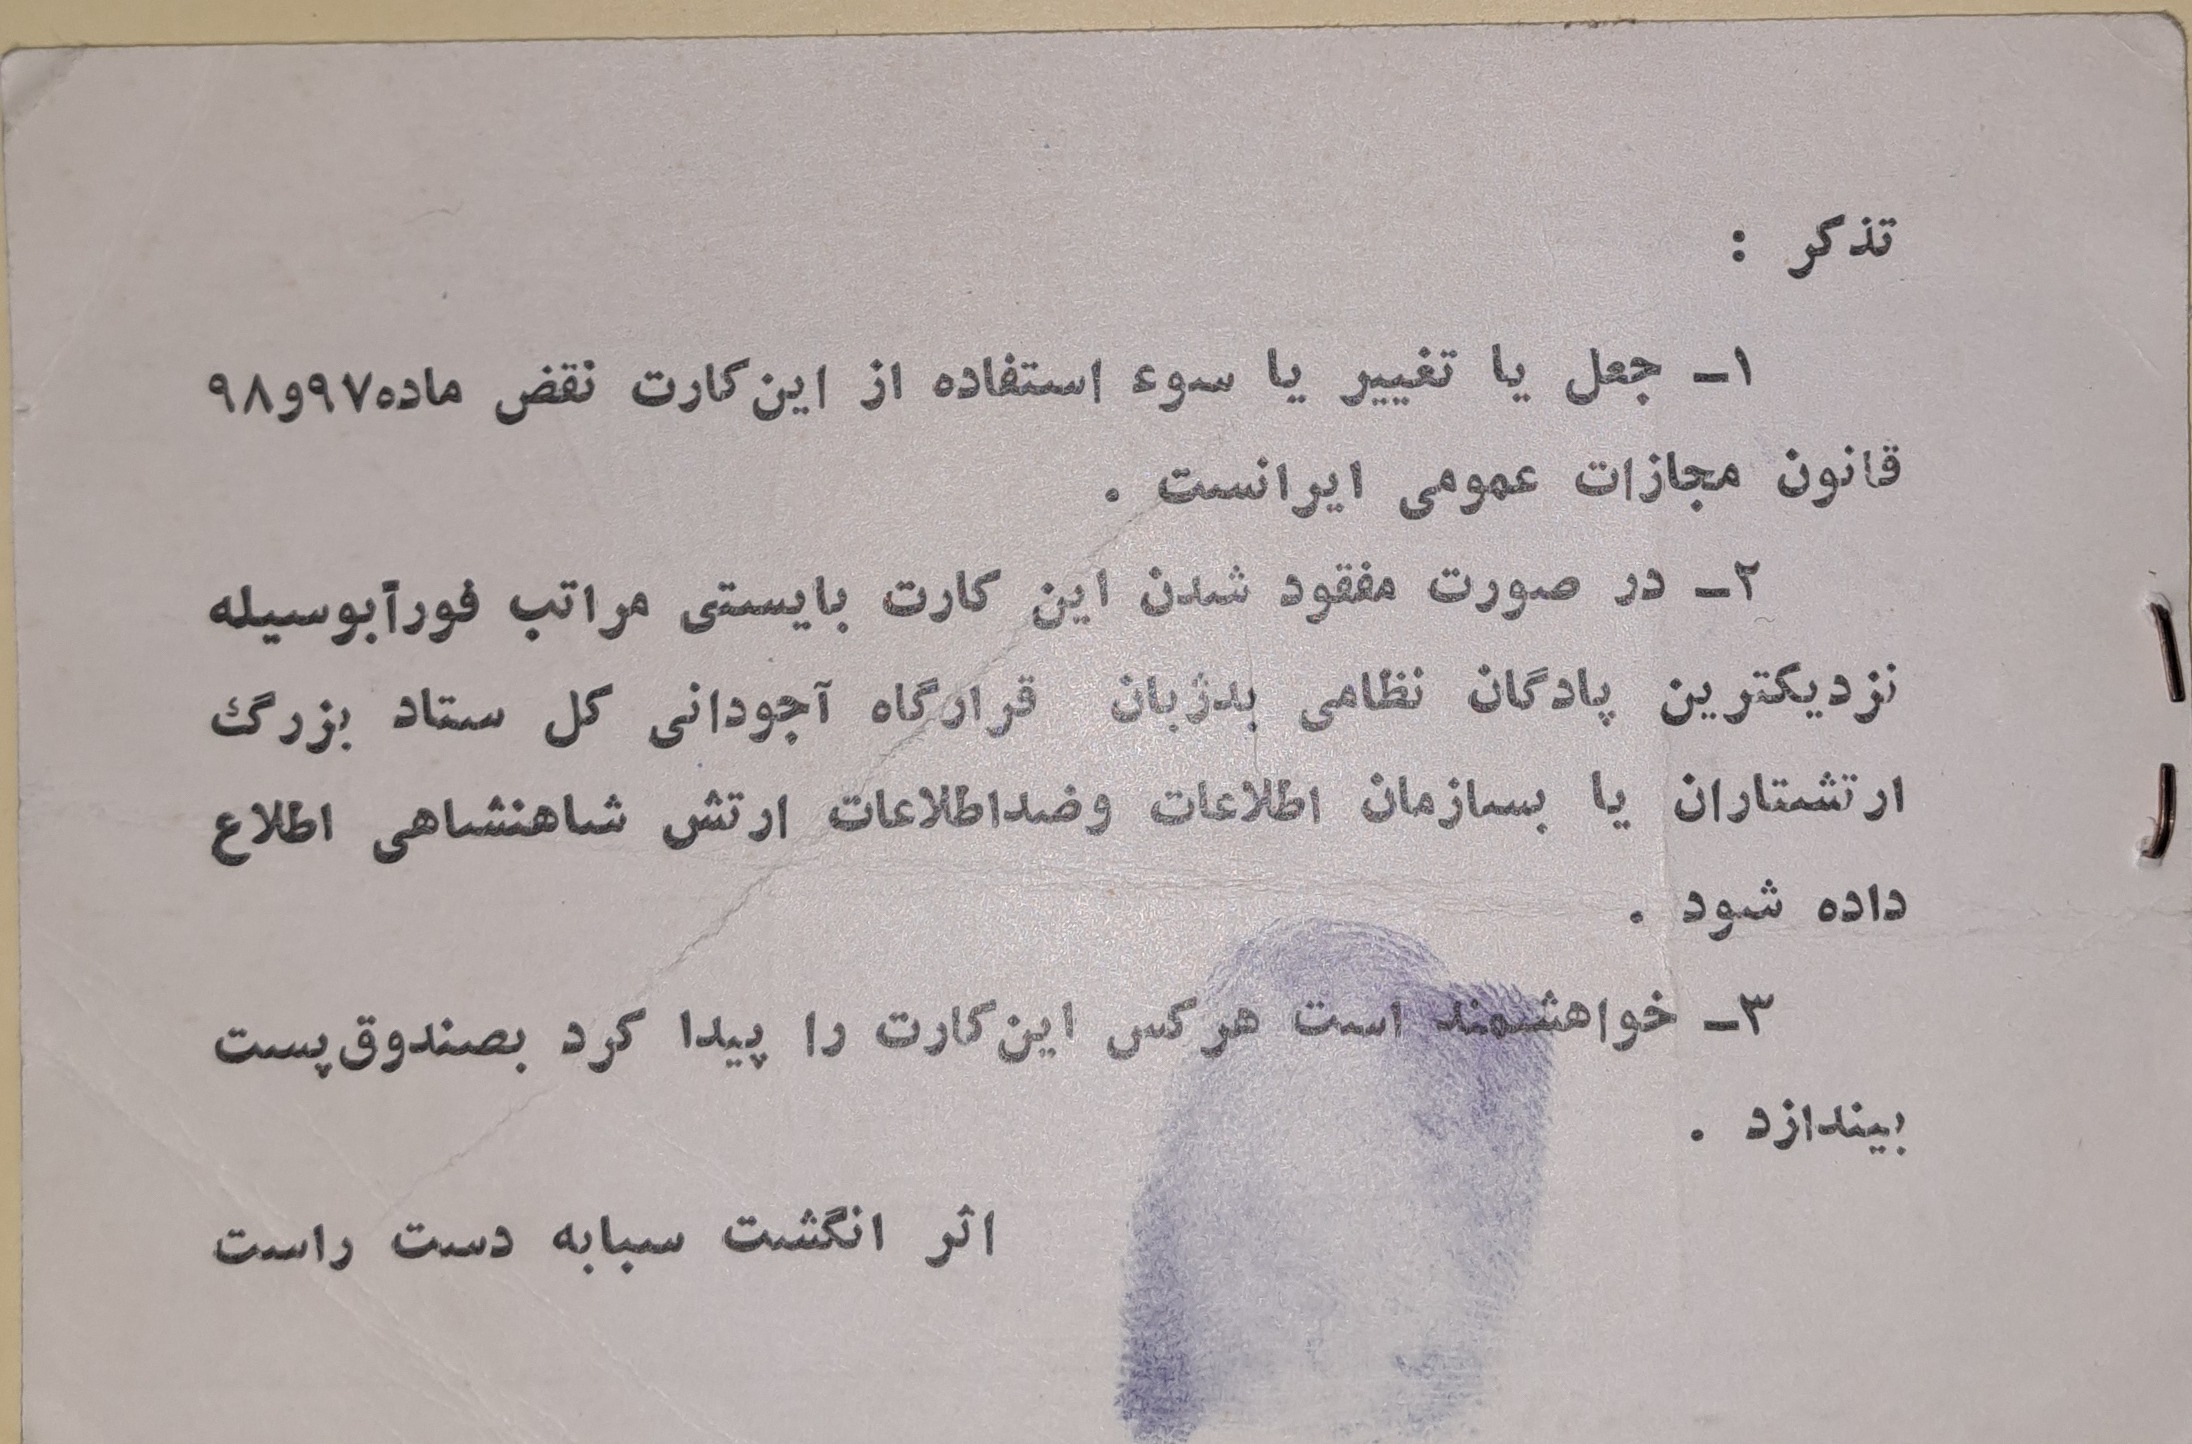 تذکر :
۱ـ جعل یا تغییر یا سوء استفاده از این‌کارت نقض ماده۹۷و۹۸
قانون مجازات عمومی ایرانست .
۲ـ در صورت مفقود شدن این کارت بایستی مراتب فوراًبوسیله
نزدیکترین پادگان نظامی بدژبان قرارگاه آجودانی کل ستاد بزرگ
ارتشتاران یا بسازمان اطلاعات وضداطلاعات ارتش شاهنشاهی اطلاع
داده شود .
۳ـ خواهشمند است هر کس این‌کارت را پیدا کرد بصندوق‌پست
بیندازد .
اثر انگشت سبابه دست راست